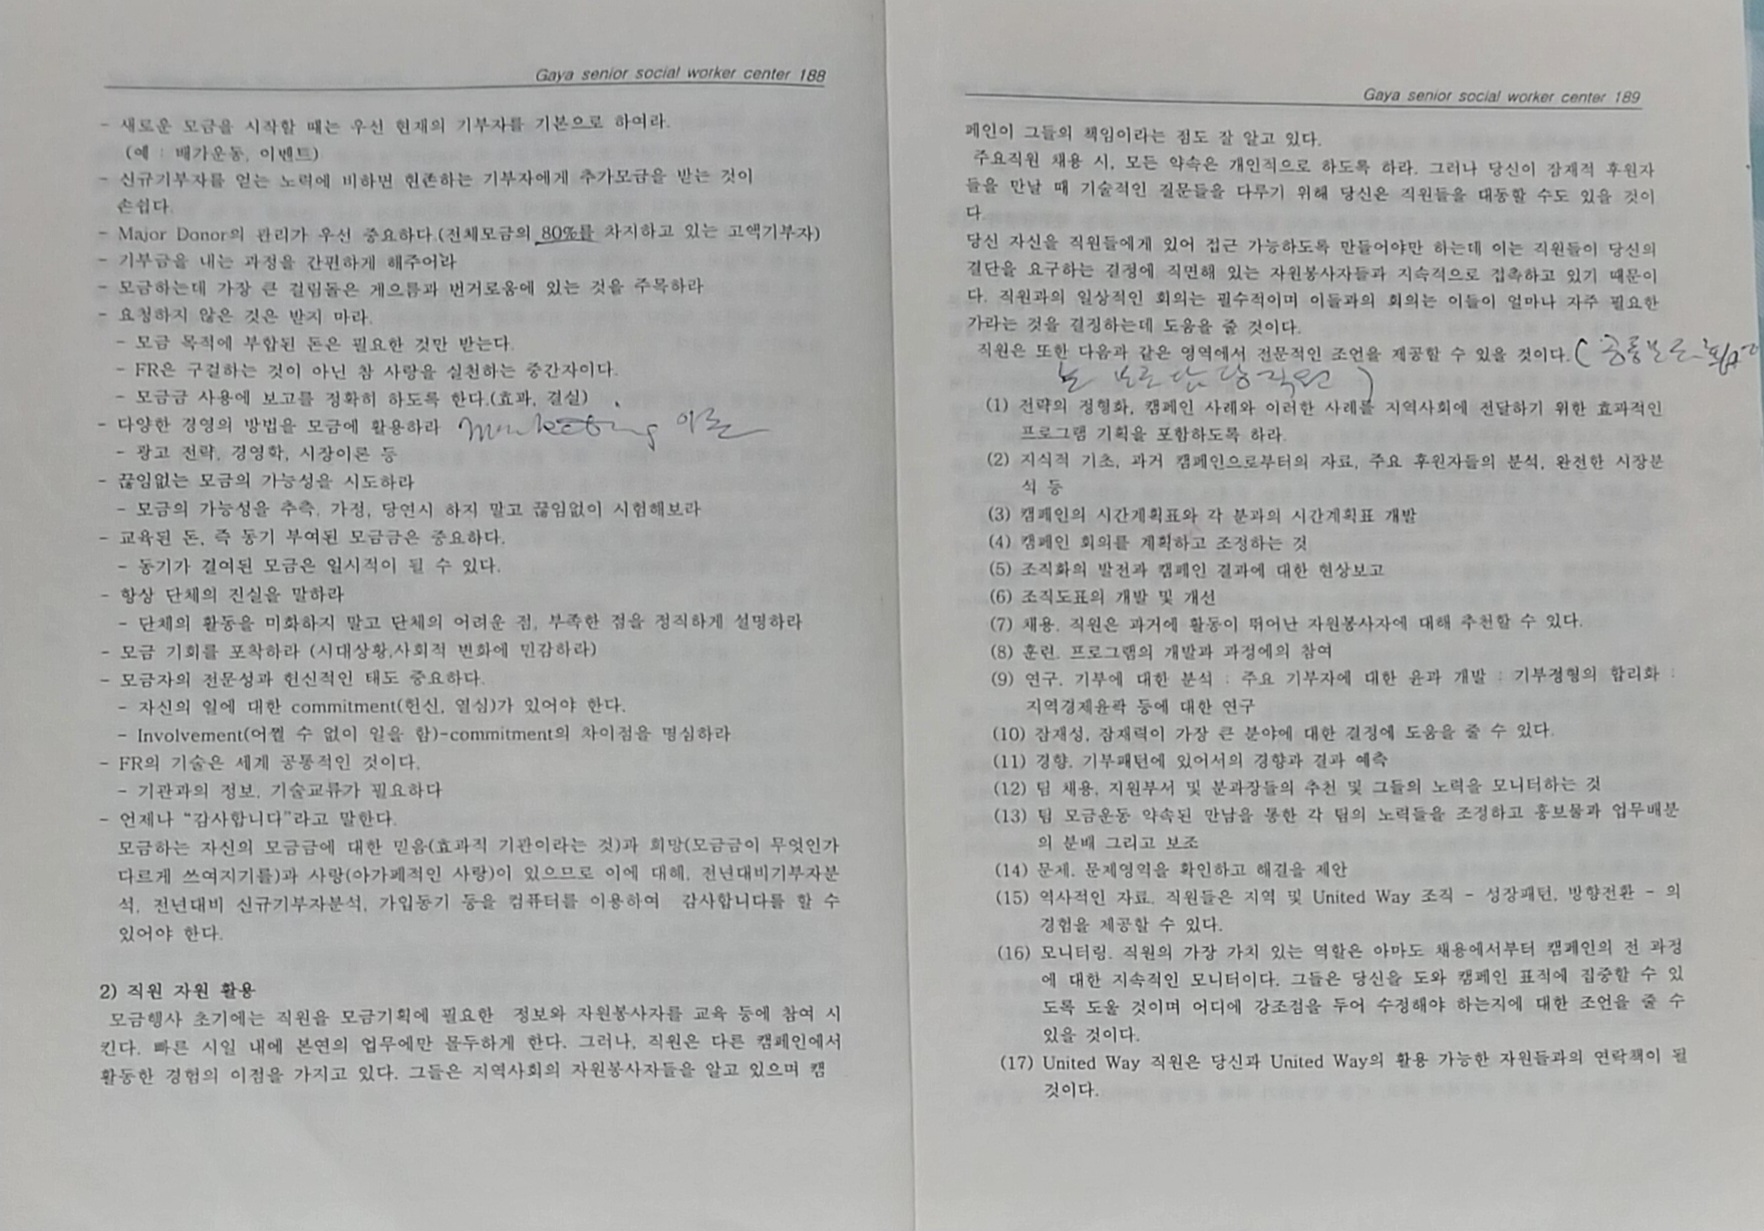 Gaya senior social worker center 188
- 새로운 모금을 시작할 때는 우선 현재의 기부자를 기본으로 하여라.
(예 : 배가운동, 이벤트)
- 신규기부자를 얻는 노력에 비하면 현존하는 기부자에게 추가모금을 받는 것이
손쉽다.
- Major Donor의 관리가 우선 중요하다.(전체모금의 80%를 차지하고 있는 고액기부자)
- 기부금을 내는 과정을 간편하게 해주어라
- 모금하는데 가장 큰 걸림돌은 게으름과 번거로움에 있는 것을 주목하라
- 요청하지 않은 것은 받지 마라.
- 모금 목적에 부합된 돈은 필요한 것만 받는다.
- FR은 구걸하는 것이 아닌 참 사랑을 실천하는 중간자이다.
- 모금금 사용에 보고를 정확히 하도록 한다.(효과, 결실)
- 다양한 경영의 방법을 모금에 활용하라 marketing 이론
- 광고 전략, 경영학, 시장이론 등
- 끊임없는 모금의 가능성을 시도하라
- 모금의 가능성을 추측, 가정, 당연시 하지 말고 끊임없이 시험해보라
- 교육된 돈, 즉 동기 부여된 모금금은 중요하다.
- 동기가 결여된 모금은 일시적이 될 수 있다.
- 항상 단체의 진실을 말하라
- 단체의 활동을 미화하지 말고 단체의 어려운 점, 부족한 점을 정직하게 설명하라
- 모금 기회를 포착하라 (시대상황,사회적 변화에 민감하라)
- 모금자의 전문성과 헌신적인 태도 중요하다.
- 자신의 일에 대한 commitment(헌신, 열심)가 있어야 한다.
- Involvement(어쩔 수 없이 일을 함)-commitment의 차이점을 명심하라
- FR의 기술은 세계 공통적인 것이다.
- 기관과의 정보, 기술교류가 필요하다
- 언제나 “감사합니다”라고 말한다.
모금하는 자신의 모금금에 대한 믿음(효과적 기관이라는 것)과 희망(모금금이 무엇인가
다르게 쓰여지기를)과 사랑(아가페적인 사랑)이 있으므로 이에 대해, 전년대비기부자분
석, 전년대비 신규기부자분석, 가입동기 등을 컴퓨터를 이용하여 감사합니다를 할 수
있어야 한다.
2) 직원 자원 활용
모금행사 초기에는 직원을 모금기획에 필요한 정보와 자원봉사자를 교육 등에 참여 시
킨다. 빠른 시일 내에 본연의 업무에만 몰두하게 한다. 그러나, 직원은 다른 캠페인에서
활동한 경험의 이점을 가지고 있다. 그들은 지역사회의 자원봉사자들을 알고 있으며 캠
Gaya senior social worker center 189
페인이 그들의 책임이라는 점도 잘 알고 있다.
주요직원 채용 시, 모든 약속은 개인적으로 하도록 하라. 그러나 당신이 잠재적 후원자
들을 만날 때 기술적인 질문들을 다루기 위해 당신은 직원들을 대동할 수도 있을 것이
다.
당신 자신을 직원들에게 있어 접근 가능하도록 만들어야만 하는데 이는 직원들이 당신의
결단을 요구하는 결정에 직면해 있는 자원봉사자들과 지속적으로 접촉하고 있기 때문이
다. 직원과의 일상적인 회의는 필수적이며 이들과의 회의는 이들이 얼마나 자주 필요한
가라는 것을 결정하는데 도움을 줄 것이다.
직원은 또한 다음과 같은 영역에서 전문적인 조언을 제공할 수 있을 것이다. (공동모금회
모금담당직원)
(1) 전략의 정형화, 캠페인 사례와 이러한 사례를 지역사회에 전달하기 위한 효과적인
프로그램 기획을 포함하도록 하라.
(2) 지식적 기초, 과거 캠페인으로부터의 자료, 주요 후원자들의 분석, 완전한 시장분
석 등
(3) 캠페인의 시간계획표와 각 분과의 시간계획표 개발
(4) 캠페인 회의를 계획하고 조정하는 것
(5) 조직화의 발전과 캠페인 결과에 대한 현상보고
(6) 조직도표의 개발 및 개선
(7) 채용. 직원은 과거에 활동이 뛰어난 자원봉사자에 대해 추천할 수 있다.
(8) 훈련. 프로그램의 개발과 과정에의 참여
(9) 연구. 기부에 대한 분석 : 주요 기부자에 대한 윤곽 개발 : 기부경형의 합리화 :
지역경제윤곽 등에 대한 연구
(10) 잠재성, 잠재력이 가장 큰 분야에 대한 결정에 도움을 줄 수 있다.
(11) 경향. 기부패턴에 있어서의 경향과 결과 예측
(12) 팀 채용, 지원부서 및 분과장들의 추천 및 그들의 노력을 모니터하는 것
(13) 팀 모금운동 약속된 만남을 통한 각 팀의 노력들을 조정하고 홍보물과 업무배분
의 분배 그리고 보조
(14) 문제. 문제영역을 확인하고 해결을 제안
(15) 역사적인 자료. 직원들은 지역 및 United Way 조직 - 성장패턴, 방향전환 - 의
경험을 제공할 수 있다.
(16) 모니터링. 직원의 가장 가치 있는 역할은 아마도 채용에서부터 캠페인의 전 과정
에 대한 지속적인 모니터이다. 그들은 당신을 도와 캠페인 표적에 집중할 수 있
도록 도울 것이며 어디에 강조점을 두어 수정해야 하는지에 대한 조언을 줄 수
있을 것이다.
(17) United Way 직원은 당신과 United Way의 활용 가능한 자원들과의 연락책이 될
것이다.